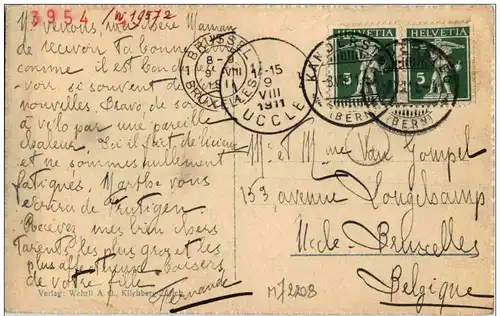 3954 /W 19572
Je venons, ma chère Maman
de recevoir ta bonne
comme il est bon de
voir si souvent de
nouvelles. Bravo de
à vélo par une pareille
chaleur. Ici il fait délicieux
et ne sommes nullement
fatigués. Marthe vous
écrira de Frutigen.
Recevez mes bien chers
Parents, les plus gros et les
plus affectueux baisers
de votre fille
Fernande
Verlag: Wehrli A. G., Kilchberg-Zürich
BRUSSEL
8-9
9 VIII
BRUX
14-15
9
VIII
1911
UCCLE
HELVETIA HELVETIA
5 5
KANDERSTEG
(BERN) (BERN)
M et Mme Van Gompel
153, avenue Longchamp
Uccle-Bruxelles
Belgique
M/2208